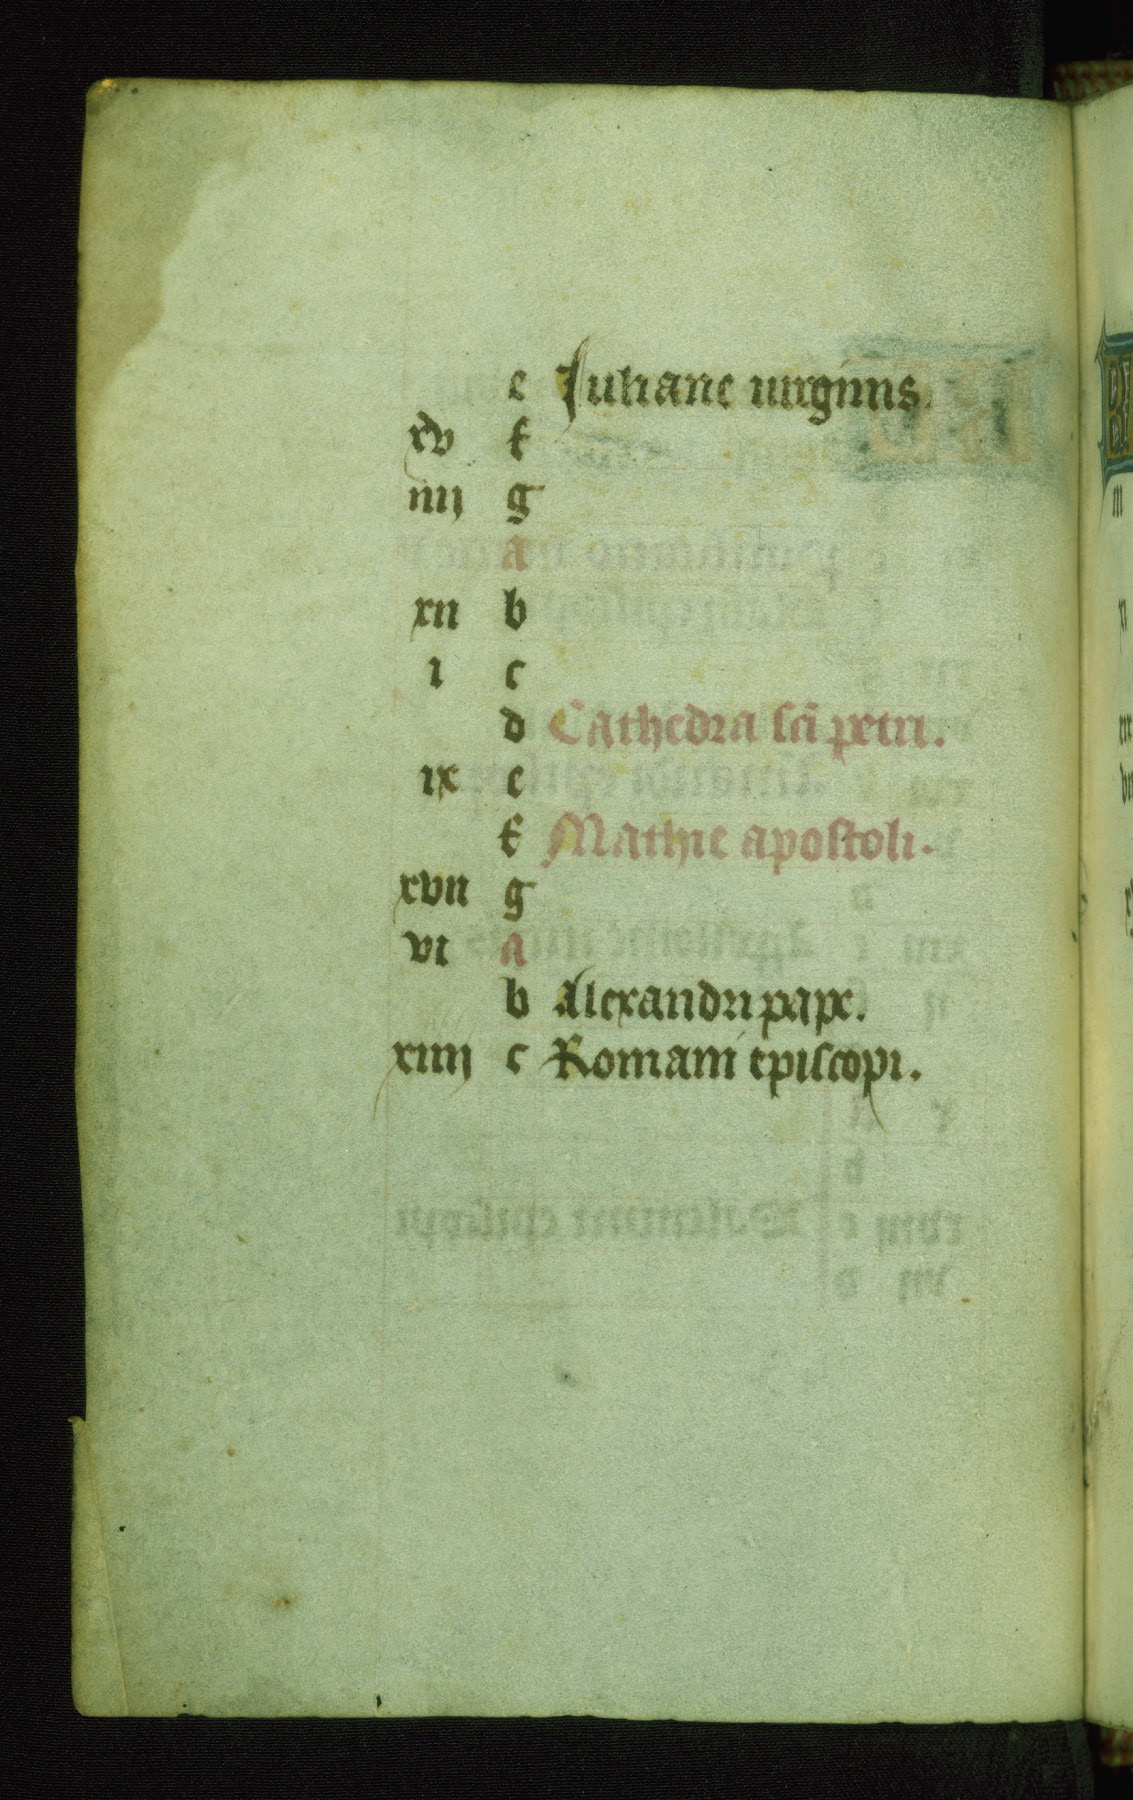 e Juliane uirginis.
xv f
iiij g
a
xii b
i c
d Cathedra sci petri.
ix e
f Mathie apostoli.
xvii g
vi a
b Alexandri pape.
xiiij c Romani episcopi.